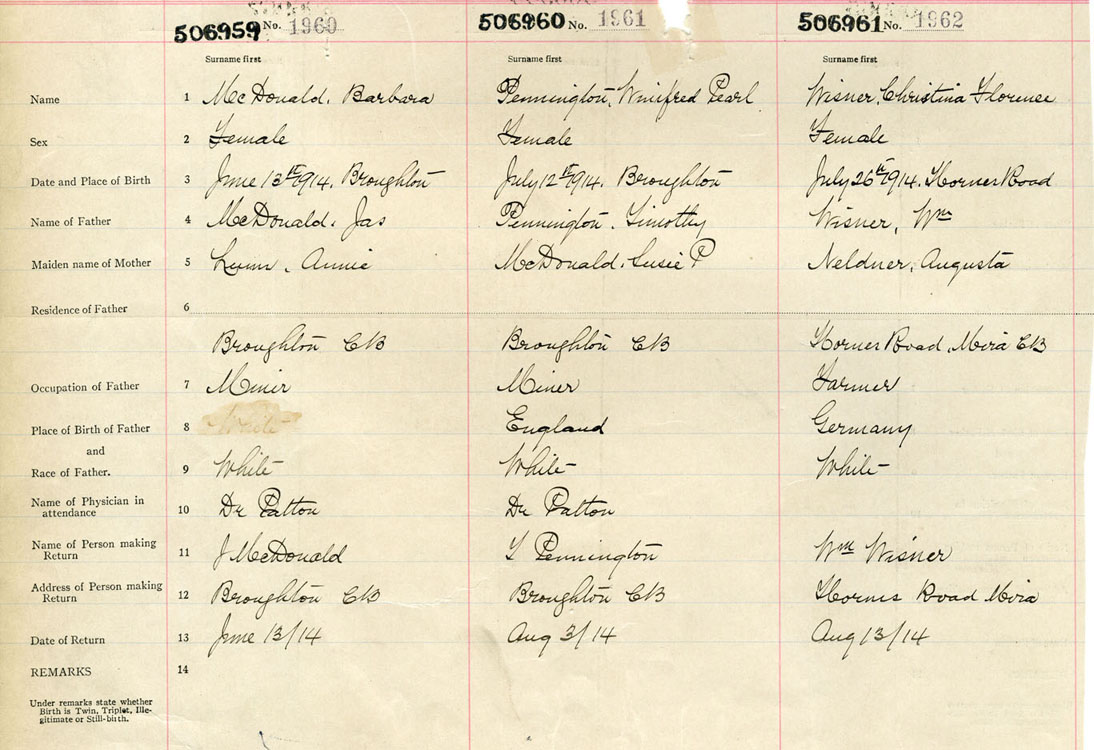 506959 No. 1960 506960 No. 1961 506961 No. 1962
Surname first Surname first Surname first
Name 1 McDonald, Barbara Pennington, Winifred Pearl Wisner, Christina Florence
Sex 2 Female Female Female
Date and Place of Birth 3 June 13th 1914, Broughton July 12th 1914, Broughton July 26th 1914, Hornes Road
Name of Father 4 McDonald, Jas Pennington, Timothy Wisner, Wm
Maiden name of Mother 5 Lunn, Annie McDonald, Susie P Neldner, Augusta
Residence of Father 6
Broughton CB Broughton CB Hornes Road, Mira CB
Occupation of Father 7 Miner Miner Farmer
Place of Birth of Father 8 England Germany
and
Race of Father. 9 White White White
Name of Physician in
attendance 10 Dr Patton Dr Patton
Name of Person making
Return 11 J McDonald T Pennington Wm Wisner
Address of Person making
Return 12 Broughton CB Broughton CB Hornes Road Mira
Date of Return 13 June 13/14 Aug 3/14 Aug 13/14
REMARKS 14
Under remarks state whether
Birth is Twin, Triplet, Ille-
gitimate or Still-birth.